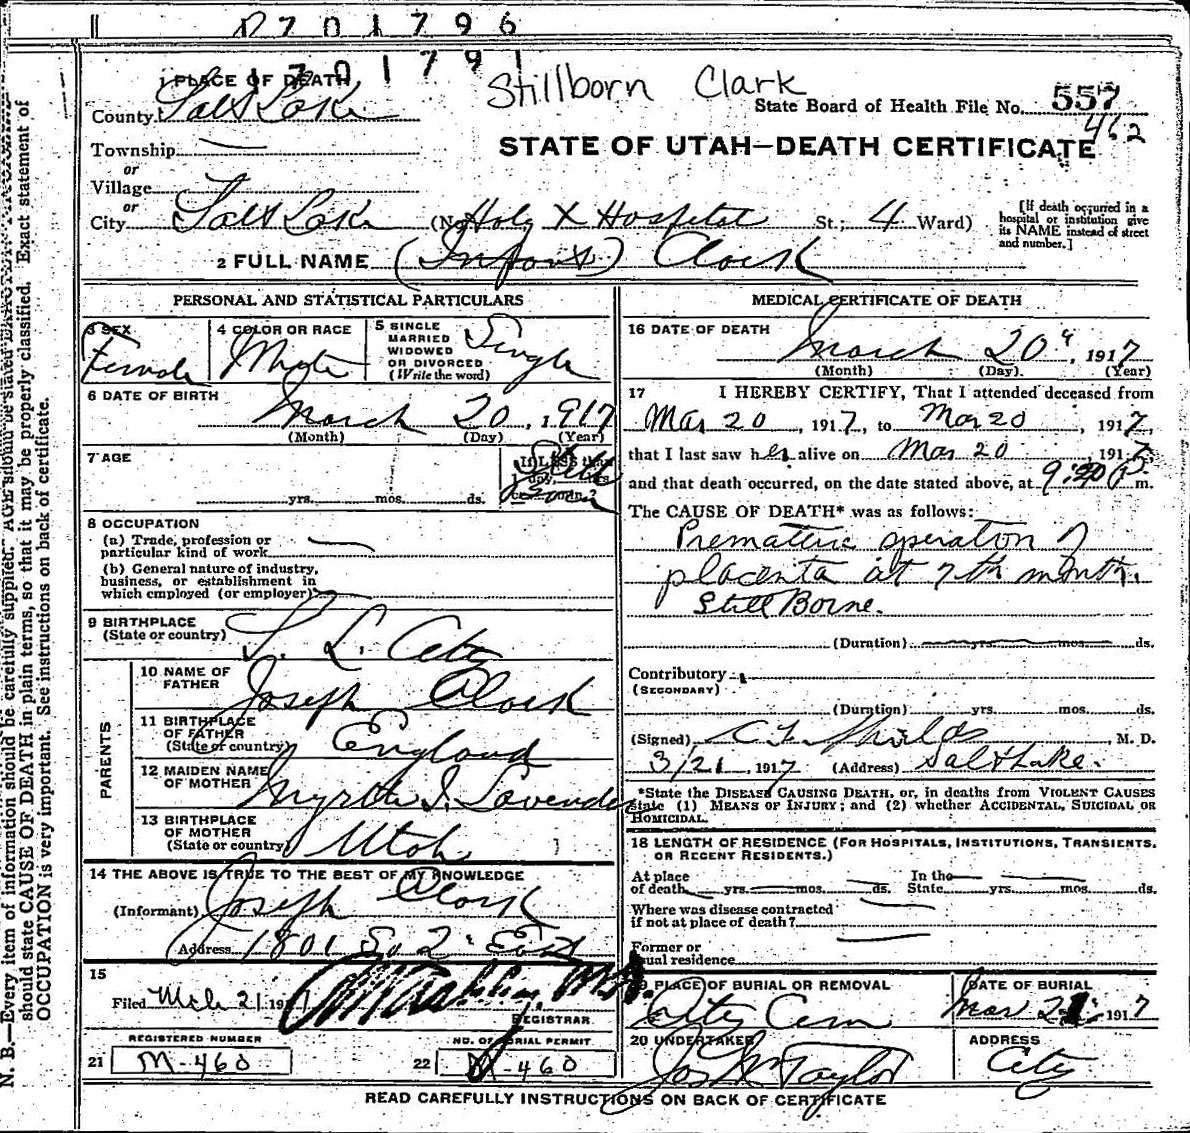 D701796
1701791
Stillborn Clark
1 PLACE OF DEATH
County Salt Lake
State Board of Health File No. 557
462
Township
or
Village
or
City Salt Lake
STATE OF UTAH—DEATH CERTIFICATE
(No. Holy X Hospital St.; 4 Ward)
[If death occurred in a
hospital or institution give
its NAME instead of street
and number.]
2 FULL NAME (Infant) Clark
PERSONAL AND STATISTICAL PARTICULARS
3 SEX
Female
4 COLOR OR RACE
White
5 SINGLE
MARRIED
WIDOWED
OR DIVORCED
(Write the word)
Single
6 DATE OF BIRTH
March 20, 1917
(Month) (Day) (Year)
7 AGE
yrs. mos. ds.
If LESS than
1 day, hrs.
or min.?
Still
Born
8 OCCUPATION
(a) Trade, profession or
particular kind of work
(b) General nature of industry,
business, or establishment in
which employed (or employer)
9 BIRTHPLACE
(State or country)
S. L. City
PARENTS
10 NAME OF
FATHER
Joseph Clark
11 BIRTHPLACE
OF FATHER
(State or country)
England
12 MAIDEN NAME
OF MOTHER
Myrtle I. Lavender
13 BIRTHPLACE
OF MOTHER
(State or country)
Utah
14 THE ABOVE IS TRUE TO THE BEST OF MY KNOWLEDGE
(Informant) Joseph Clark
Address 1801 So 2 East
15
Filed Mch 21 1917
REGISTRAR
REGISTERED NUMBER
21 M-460
NO. OF BURIAL PERMIT
22 M-460
MEDICAL CERTIFICATE OF DEATH
16 DATE OF DEATH
March 20", 1917
(Month) (Day) (Year)
17 I HEREBY CERTIFY, That I attended deceased from
Mar 20, 1917, to Mar 20, 1917,
that I last saw her alive on Mar 20, 1917,
and that death occurred, on the date stated above, at P m.
The CAUSE OF DEATH* was as follows:
Prematture operation of
placenta at 7th month.
Still Borne.
(Duration) yrs. mos. ds.
Contributory
(SECONDARY)
(Duration) yrs. mos. ds.
(Signed) C. F. Shields, M. D.
3/21, 1917 (Address) Salt Lake.
*State the DISEASE CAUSING DEATH, or, in deaths from VIOLENT CAUSES
state (1) MEANS OF INJURY; and (2) whether ACCIDENTAL, SUICIDAL OR
HOMICIDAL.
18 LENGTH OF RESIDENCE (FOR HOSPITALS, INSTITUTIONS, TRANSIENTS,
OR RECENT RESIDENTS.)
At place
of death yrs. mos. ds.
In the
State yrs. mos. ds.
Where was disease contracted
if not at place of death?
Former or
usual residence
19 PLACE OF BURIAL OR REMOVAL
City Cem
DATE OF BURIAL
Mar 21, 1917
20 UNDERTAKER
Jos Wm Taylor
ADDRESS
City
READ CAREFULLY INSTRUCTIONS ON BACK OF CERTIFICATE
N. B.—Every item of information should be carefully supplied. AGE should be stated EXACTLY. PHYSICIANS
should state CAUSE OF DEATH in plain terms, so that it may be properly classified. Exact statement of
OCCUPATION is very important. See instructions on back of certificate.